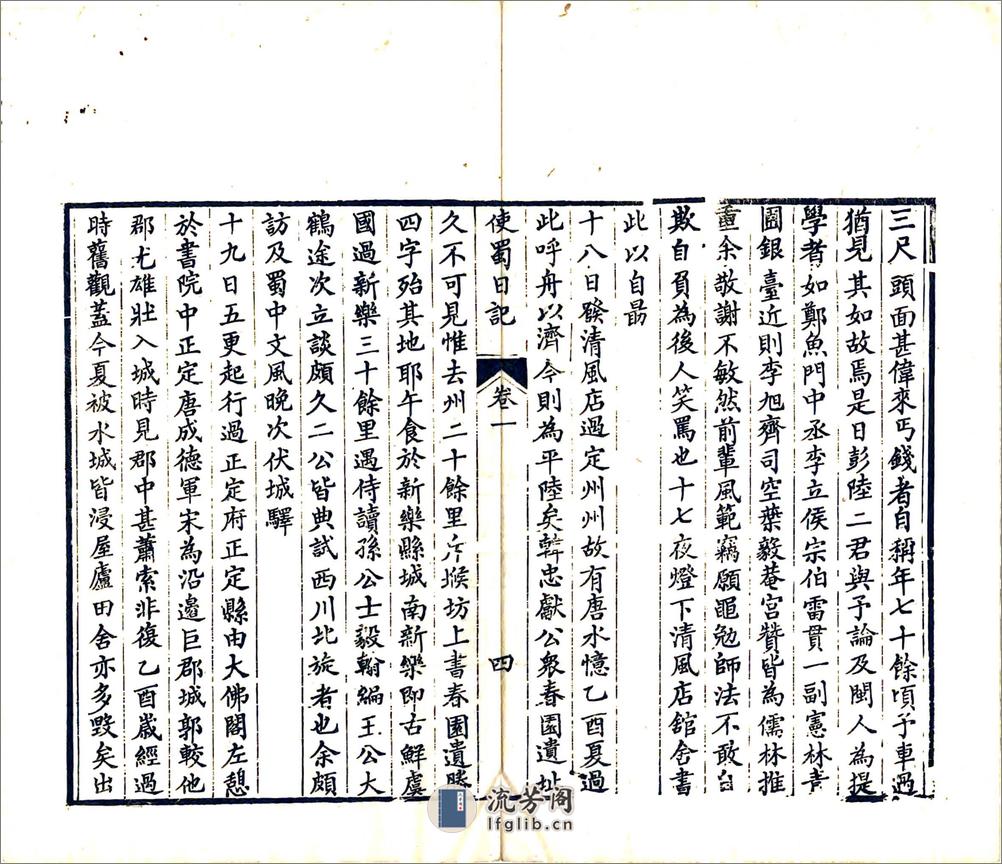 三尺頭面甚偉來丐錢者自稱年七十餘頃予車過
猶見其如故焉是日彭陸二君與予論及閩人為提
學者如鄭魚門中丞李立侯宗伯雷貫一副憲林青
圃銀臺近則李旭齊司空葉毅菴宮贊皆為儒林推
重余敬謝不敏然前輩風範竊願黽勉師法不敢自
欺自負為後人笑罵也十七夜燈下清風店舘舍書
此以自勗
十八日發清風店過定州州故有唐水憶乙酉夏過
此呼舟以濟今則為平陸矣韓忠獻公衆春園遺址
使蜀日記
卷一
四
久不可見惟去州二十餘里斥堠坊上書春園遺勝
四字殆其地耶午食於新樂縣城南新樂即古鮮虞
國過新樂三十餘里遇侍讀孫公士毅翰編王公大
鶴途次立談頗久二公皆典試西川北旋者也余頗
訪及蜀中文風晚次伏城驛
十九日五更起行過正定府正定縣由大佛閣左憩
於書院中正定唐成德軍宋為沿邊巨郡城郭較他
郡尤雄壯入城時見郡中甚蕭索非復乙酉歲經過
時舊觀蓋今夏被水城皆浸屋廬田舍亦多毀矣出
流芳阁
lfglib.cn